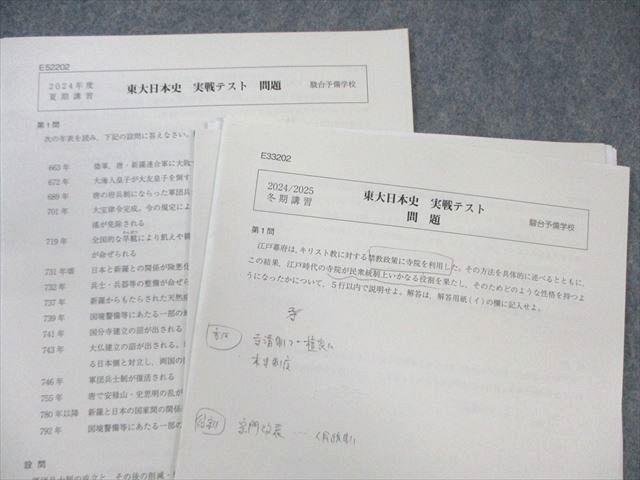 E52202
2024年度
夏期講習
東大日本史 実戦テスト 問題
駿台予備学校
第1問
次の年表を読み、下記の設問に答えなさい。
663年 倭軍、唐・新羅連合軍に大敗
672年 大海人皇子が大友皇子を倒す
689年 唐の府兵制にならった軍団兵
701年 大宝律令完成。令の規定によ
徭が免除される
719年 全国的な旱魃により飢えや窮
が命ぜられる
731年頃 日本と新羅との関係が険悪化
732年 兵士・兵器等の整備が命ぜら
737年 新羅からもたらされた天然痘
739年 国境警備等にあたる一部の兼
741年 国分寺建立の詔が出される
743年 大仏建立の詔が出される。
る日本側と対立し、両国の関
746年 軍団兵士制が復活される
755年 唐で安禄山・史思明の乱が
780年以降 新羅と日本の国家間の関係
792年 国境警備等にあたる一部の
設問
軍団兵士制の成立と、その後の削減・
E33202
2024/2025
冬期講習
東大日本史 実戦テスト
問題
駿台予備学校
第1問
江戸幕府は、キリスト教に対する禁教政策に寺院を利用した。その方法を具体的に述べるとともに、
この結果、江戸時代の寺院が民衆統制上いかなる役割を果たし、そのためどのような性格を持つよ
うになったかについて、5行以内で説明せよ。解答は、解答用紙(イ)の欄に記入せよ。
寺
方法
寺請制
本末制度
役割
宗門改